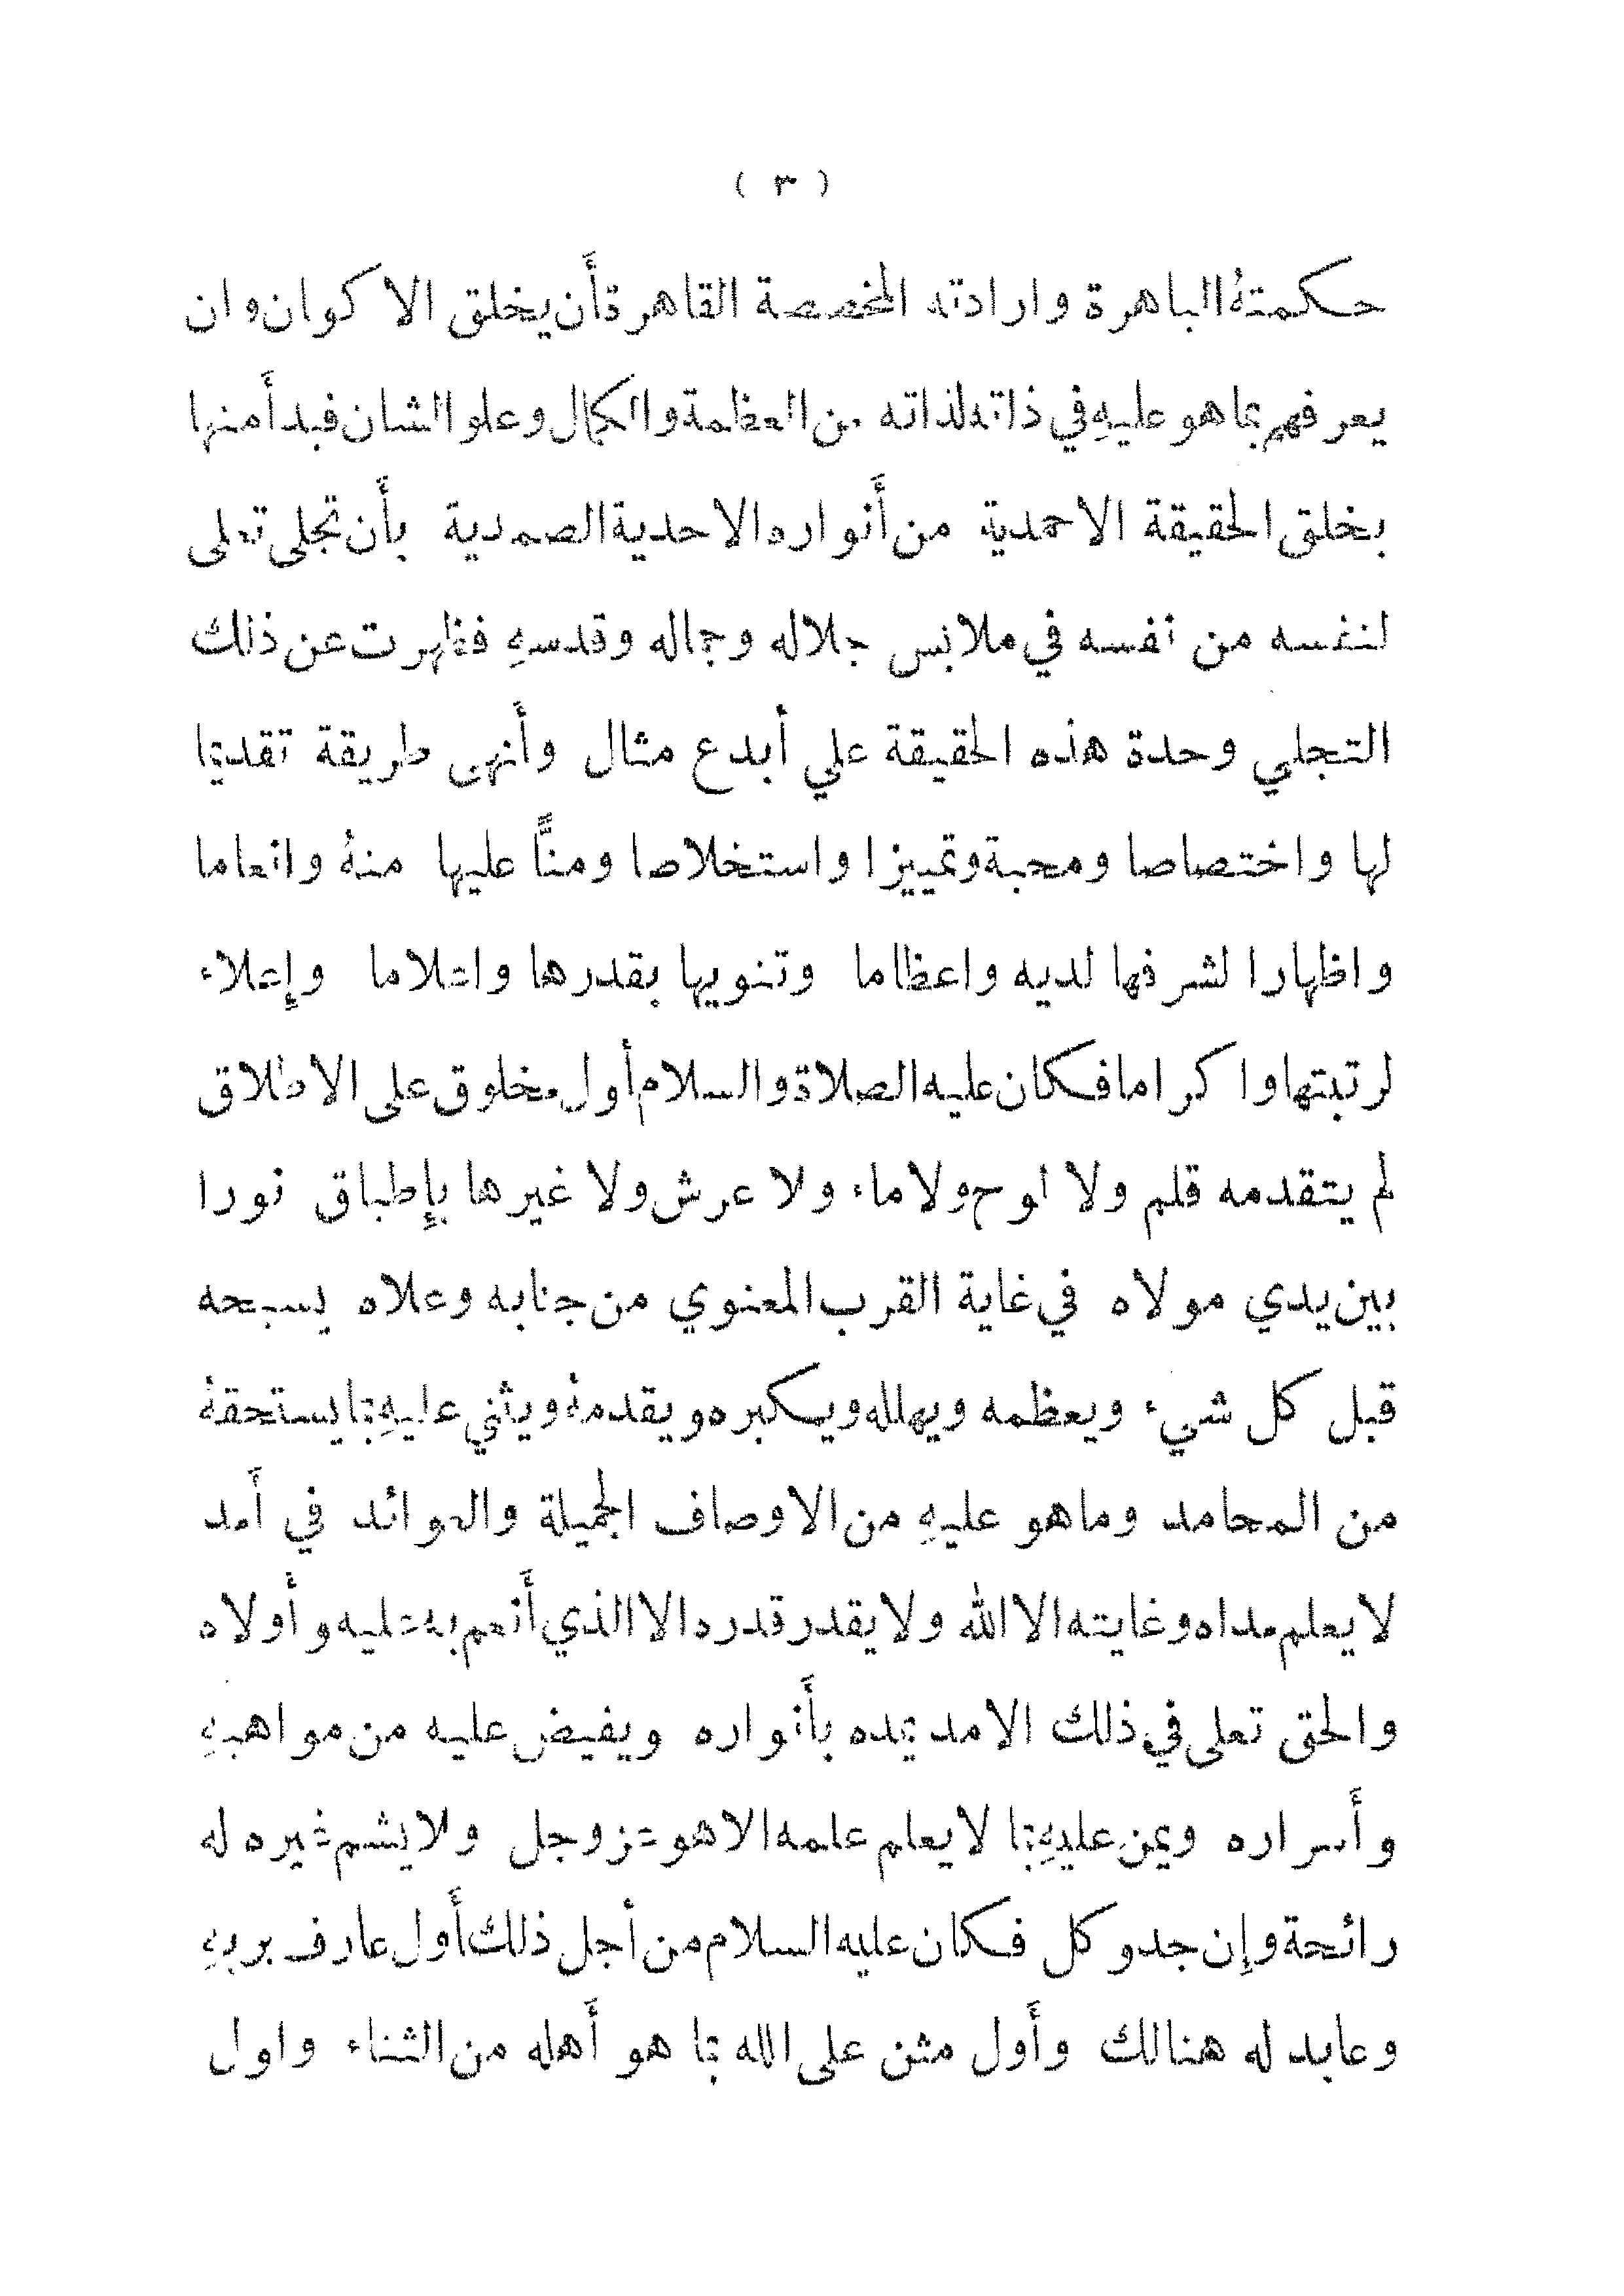 ( ٣ )
حكمتهُ الباهرة وارادته المخصصة القاهرة أَن يخلق الاكوان وان
يعرفهم بما هو عليهِ في ذاته لذاته من العظمة والكمال وعلو الشان فبدأَ منها
بخلق الحقيقة الاحمدية من أَنواره الاحدية الصمدية بأَن تجلى تعلى
لنفسه من نفسه في ملابس جلاله وجماله وقدسهِ فظهرت عن ذلك
التجلي وحدة هذه الحقيقة علي أبدع مثال وأَنهى طريقة تقديما
لها واختصاصا ومحبة وتمييزا واستخلاصا ومنًّا عليها منهُ وانعاما
واظهارا لشرفها لديه واعظاما وتنويها بقدرها واعلاما وإعلاء
لرتبتها واكراما فكان عليه الصلاة والسلام أول مخلوق على الاطلاق
لم يتقدمه قلم ولا لوح ولا ماء ولا عرش ولا غيرها بإطباق نورا
بين يدي مولاه في غاية القرب المعنوي من جنابه وعلاه يسبحه
قبل كل شيء ويعظمه ويهلله ويكبره ويقدمهُ ويثني عليهِ بما يستحقهُ
من المحامد وما هو عليهِ من الاوصاف الجميلة والعوائد في أَمد
لا يعلم مداه وغايته الا الله ولا يقدر قدره الا الذي أَنعم به عليه وأَولاه
والحق تعلى في ذلك الامد يمده بأَنواره ويفيض عليه من مواهبهِ
وأَسراره ويمن عليهِ بما لا يعلم علمه الا هو عز وجل ولا يشم غيره له
رائحة وإِن جد وكل فكان عليه السلام من أجل ذلك أَول عارف بربهِ
وعابد له هنالك وأَول مثن على الله بما هو أَهله من الثناء واول